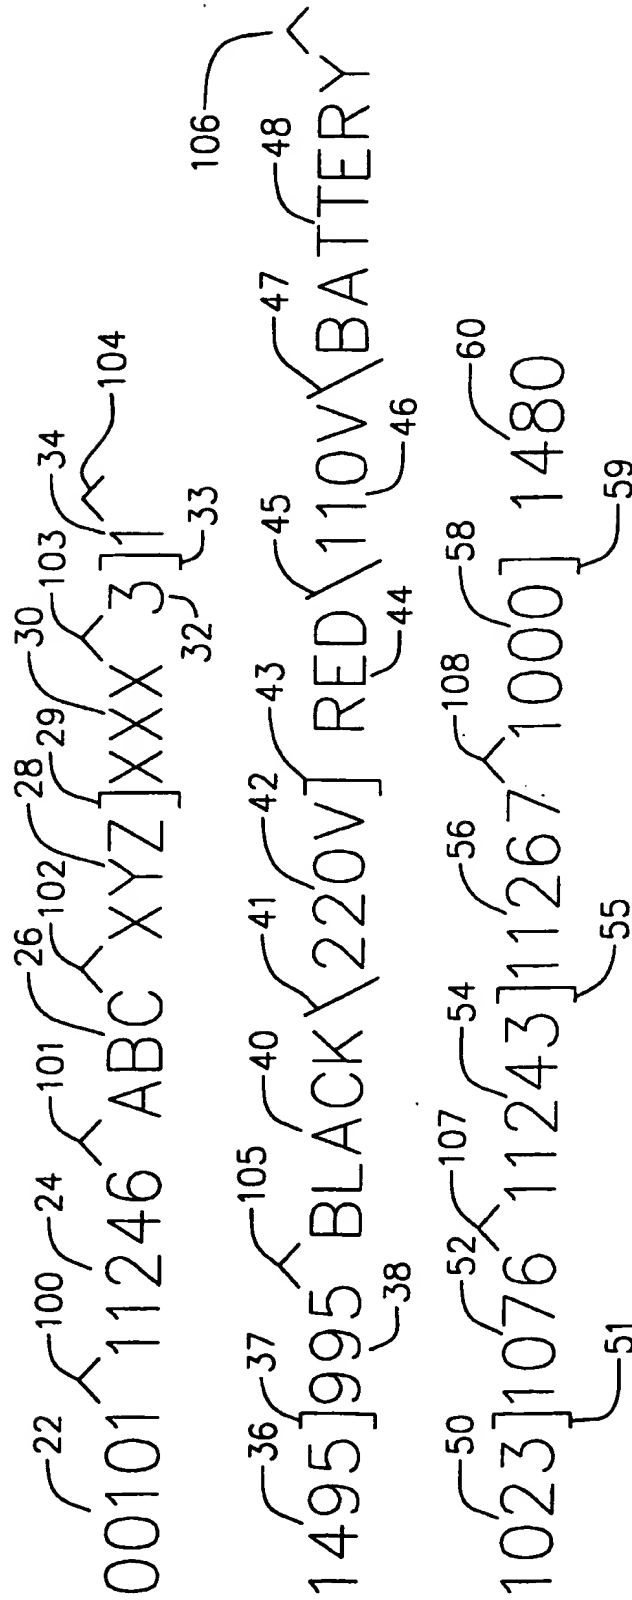 22 100 24 101 26 102 28 29 30 103 34 104
00101^11246^ABC^XYZ]XXX^3]1^
32 33
36 37 105 40 41 42 43 45 47 48 106
1495]995^BLACK\220V]RED\110V\BATTERY^
38 44 46
50 52 107 54 56 108 58 60
1023]1076^11243]11267^1000]1480
51 55 59